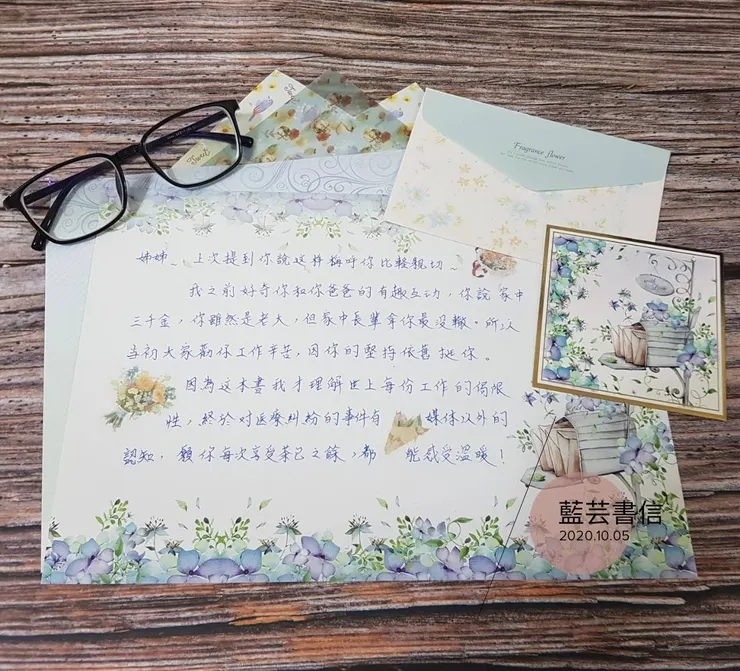 Sweet
Fragrance flower
姊姊~上次提到你說這样稱呼你比較親切~
我之前好奇你和你爸爸的有趣互动，你說家中
三千金，你雖然是老大，但家中長輩拿你最没轍，所以
当初大家勸你工作辛苦，因你的堅持依舊挺你。
因為這本書我才理解世上每份工作的侷限
性，終於对医療糾紛的事件有媒体以外的
認知，願你每次享受茶已之餘，都能感受溫暖！
藍芸書信
2020.10.05